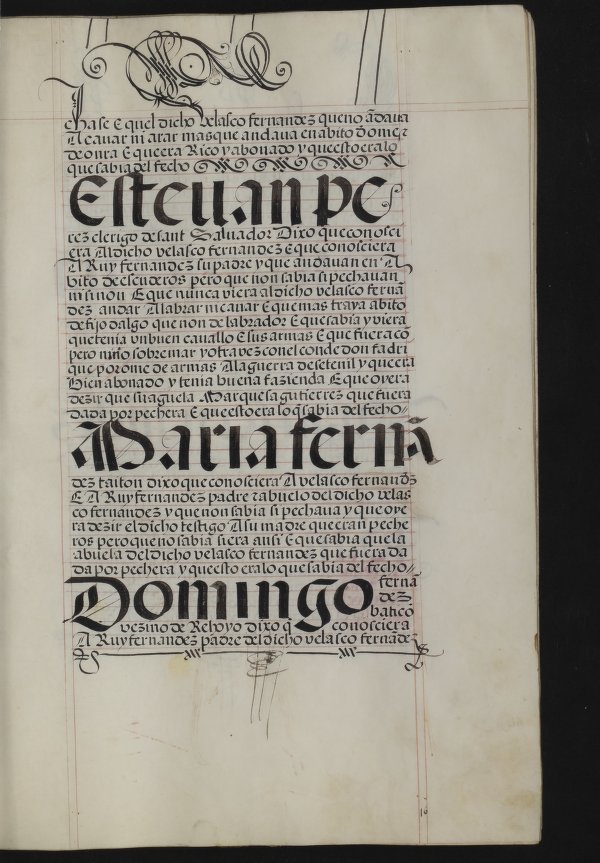 chase E quel dicho velasco fernandez que no ãdaua
A cauar ni arar mas que andaua en abito d̃ omer
de onrra E que era Rico y abonado y que esto era lo
que sabia del fecho
Esteuan pe
rez clerigo de sant Saluador Dixo que conosci
era Al dicho velasco fernandez E que conosciera
A Ruy fernandez su padre y que andauan en A
bito de escuderos pero que non sabia si pechauan
ni si non E que nunca viera al dicho velasco fernã
dez andar A labrar ni cauar E que mas traya abito
de fijo dalgo que non de labrador E que sabia y viera
que tenia vn buen cauallo E sus armas E que fuera cõ
pero niño sobre mar y otra vez con el conde don fadri
que por ome de armas A la guerra de setenil y que era
bien abonado y tenia buena fazienda E que oyera
dezir que su aguela Marquesa gutierrez que fuera
dada por pechera E que esto era lo q̃ sabia del fecho
Maria fernã
dez taiton dixo que conosciera A velasco fernandz
E A Ruy fernandez padre τ abuelo del dicho velas
co fernandez y que non sabia si pechaua y que oye
ra dezir el dicho testigo A su madre que eran peche
ros pero que no sabia si era ansi E que sabia que la
abuela del dicho velasco fernandez que fuera da
da por pechera y que esto era lo que sabia del fecho
Domingo fernã
dez
batico
vezino de Rehoyo dixo q̃ conosciera
A Ruy fernandez padre del dicho velasco fernãdez
16